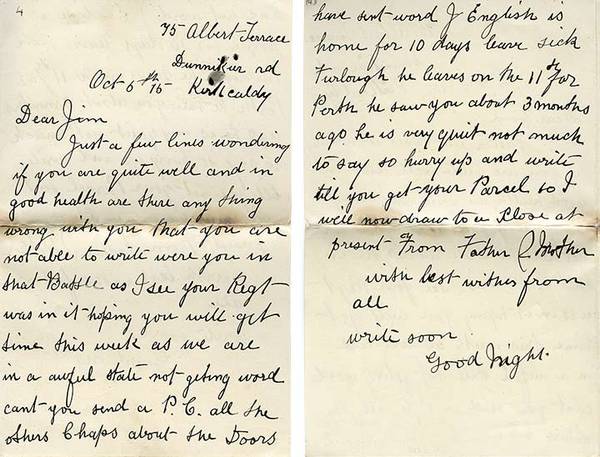 4
75 Albert Terrace
Dunnikier rd
Oct 5th 15 Kirkcaldy
Dear Jim
Just a few lines wondering
if you are quite well and in
good health are there any thing
wrong with you that you are
not able to write were you in
that Battle as I see your Regt
was in it hoping you will get
time this week as we are
in a awful state not geting word
cant you send a P.C. all the
others Chaps about the Doors
have sent word J English is
home for 10 days leave sick
Furlough he leaves on the 11th for
Perth he saw you about 3 months
ago he is very quit not much
to say so hurry up and write
till you get your Parsel so I
well now draw to a Close at
present From Father & Mother
with best wishes from
all
write soon
Good Night.